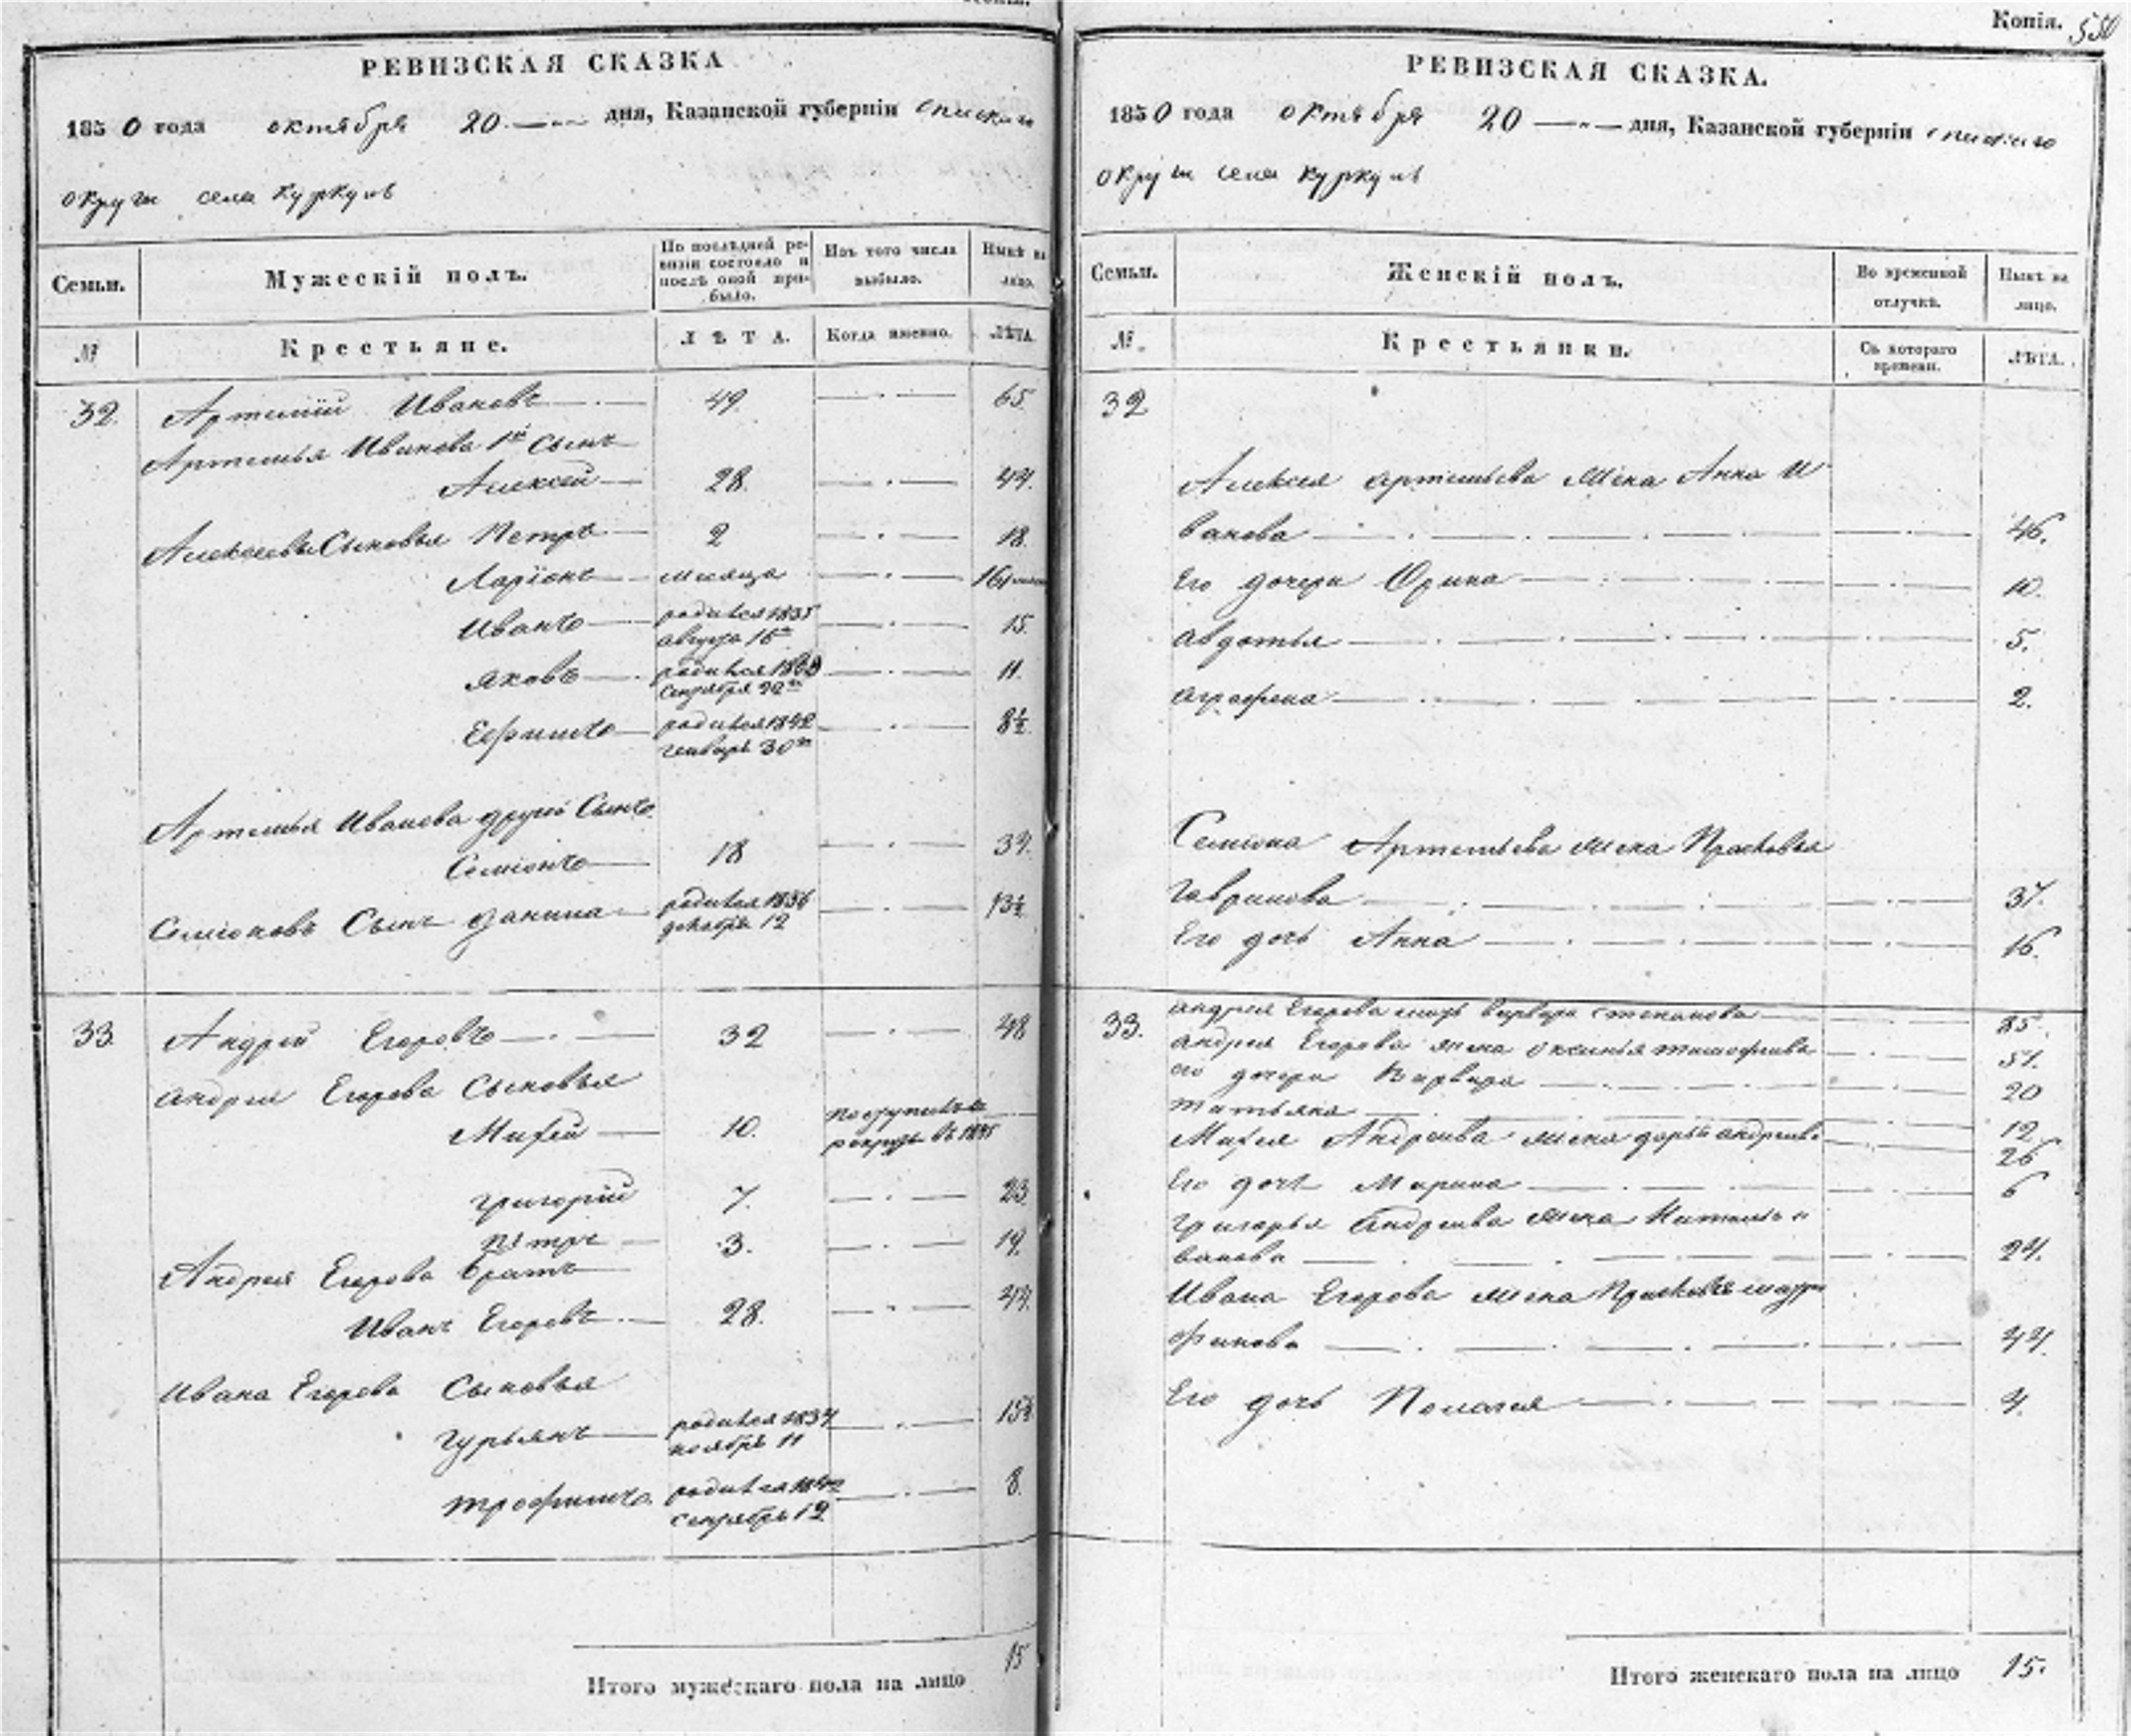 РЕВИЗСКАЯ СКАЗКА
1850 года октября 20 дня, Казанской губерніи спаскаго
округи села куркуль
Семьи.
Мужескій полъ.
По послѣдней ревизіи состояло и послѣ оной прибыло.
Изъ того числа выбыло.
Нынѣ на лицо.
№
Крестьяне.
ЛѢТА.
Когда именно.
ЛѢТА.
32. Артемій Ивановъ 49. 65.
Артемья Иванова 1й Сынъ
Алексей 28. 44.
Алексеевы Сыновья Петръ 2 18.
Ларіонъ месяца 16
Иванъ родился 1835 августа 15. 
Яковъ родился сентября 22 11.
Ефимъ родился 1842 генваря 30 8½
Артемья Иванова другой Сынъ
Семіонъ 18 34.
Семіоновъ Сынъ данила родился 1836 декабря 12 13½
33. Андрей Егоровъ 32 48
андрея Егорова Сыновья
Михей 10. поступилъ в рекруты въ 1845
григорій 7. 23
петръ 3. 19.
Андрея Егорова братъ
Иванъ Егоровъ 28. 44.
Ивана Егорова Сыновья
гурьянъ родился 1834 ноября 11 15½
трофимъ родился 1842 сентября 12 8.
15
Итого мужескаго пола на лицо
Копія. 550
РЕВИЗСКАЯ СКАЗКА.
1850 года октября 20 дня, Казанской губерніи спаскаго
округи села куркуль
Семьи.
Женскій полъ.
Во временной отлучкѣ.
Нынѣ на лицо.
№.
Крестьянки.
Съ котораго времени.
ЛѢТА.
32
Алексея артемьева жена Анна И
ванова 46.
Его дочери Орина 10.
авдотья 5.
аграфена 2.
Семіона Артемьева жена Прасковья
гаврилова 37.
Его дочь Анна 16.
33. андрея Егорова мать варвара степанова 85.
андрея Егорова жена оксинья тимофеева 51.
его дочери Варвара 20
татьяна 12
Михея Андреева жена дарья андреева 26
Его дочь Марина 6
григорья андреева жена Наталья и
ванова 24.
Ивана Егорова жена Прасковья
финова 44.
Его дочь Пелагея 4.
Итого женскаго пола на лицо 15.